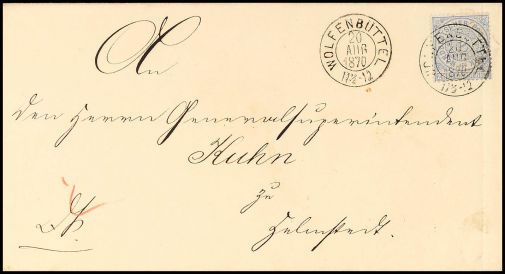 WOLFENBÜTTEL
20
AUG
1870
11½-12
WOLFENBÜTTEL
20
AUG
1870
11½-12
An
den Herrn Generalsuperintendent
Kuhn
zu
Helmstedt.